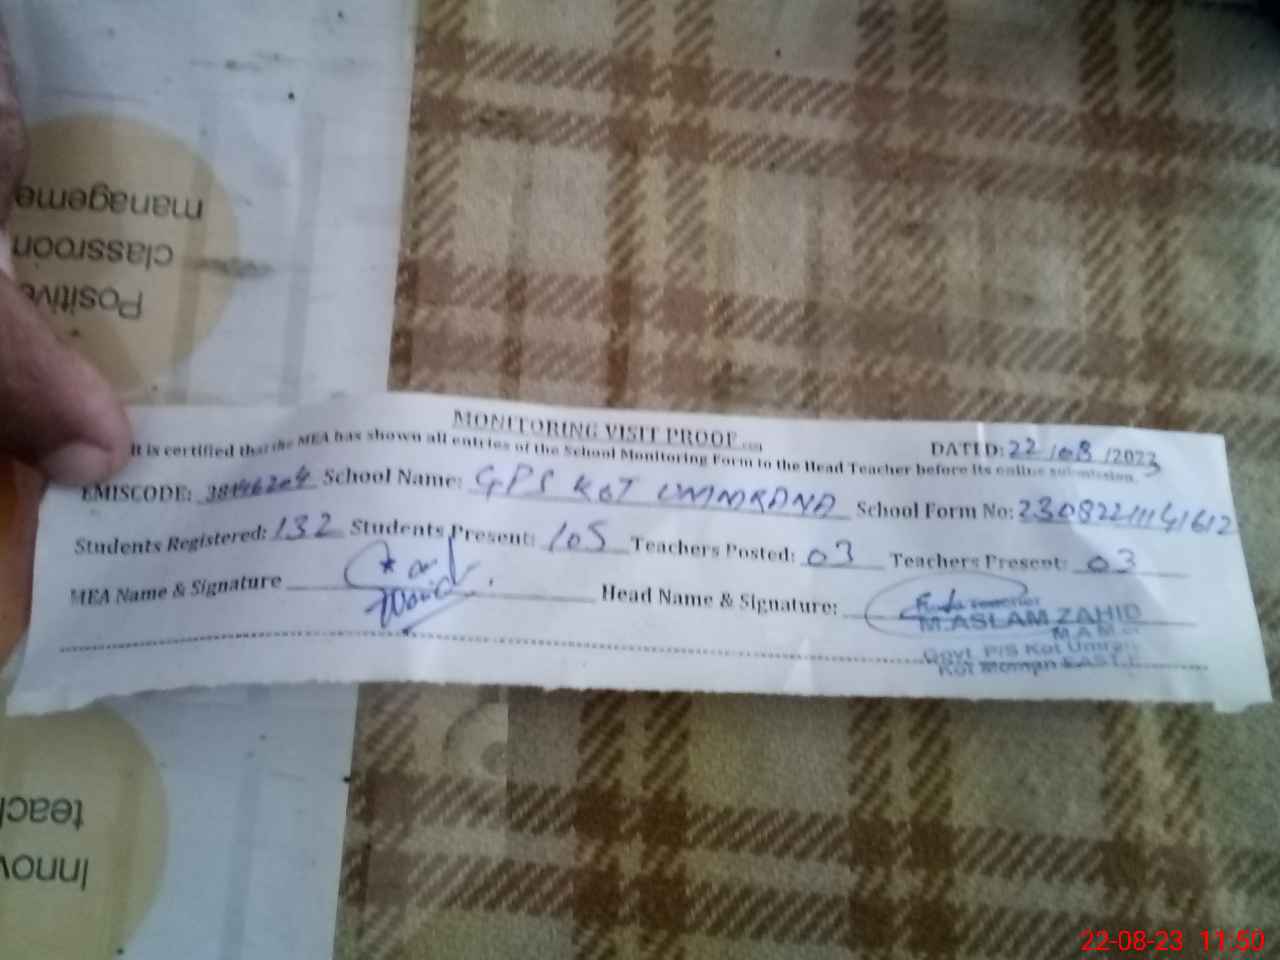 MONITORING VISIT PROOF
DATED: 22/08/2023
It is certified that the MEA has shown all entries of the School Monitoring Form to the Head Teacher before its online submission.
EMISCODE: 38446204 School Name: GPS KOT UMMRANA School Form No: 2308221141612
Students Registered: 132 Students Present: 105 Teachers Posted: 03 Teachers Present: 03
MEA Name & Signature Head Name & Signature:
M.ASLAM ZAHID
Govt P/S Kot Umran
Kot Moman EAST
Positive
classroon
manageme
Innov
teach
22-08-23 11:50